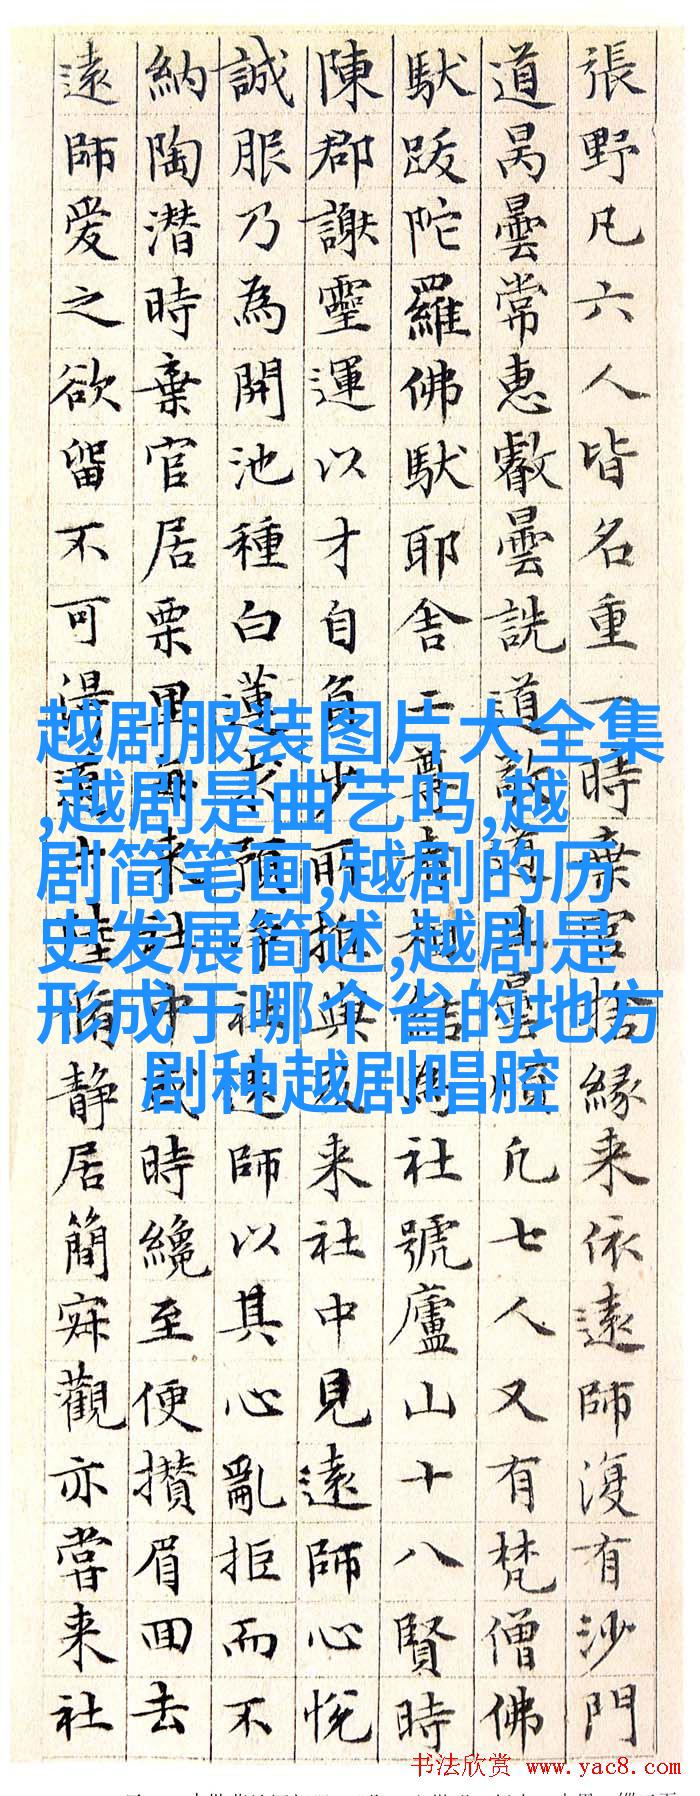 張野凡六人皆名重一時棄官捨緣来依遠師復有沙門
道昺曇常惠叡曇詵道敬道生曇順凡七人又有梵僧佛
馱跋陀羅佛馱耶舍二尊者相結為社號廬山十八賢時
陳郡謝靈運以才自負少所推與及来社中見遠師心悅
誠服乃為開池種白蓮求預淨社遠師以其心亂拒而不
納陶潜時棄官居栗里每来社中或時纔至便攢眉回去
遠師爱之欲留不可得道士陸脩静居簡寂觀亦嘗来社
越剧服装图片大全集
,越剧是曲艺吗,越
剧简笔画,越剧的历
史发展简述,越剧是
形成于哪个省的地方
剧种越剧唱腔
书法欣赏 www.yac8.com